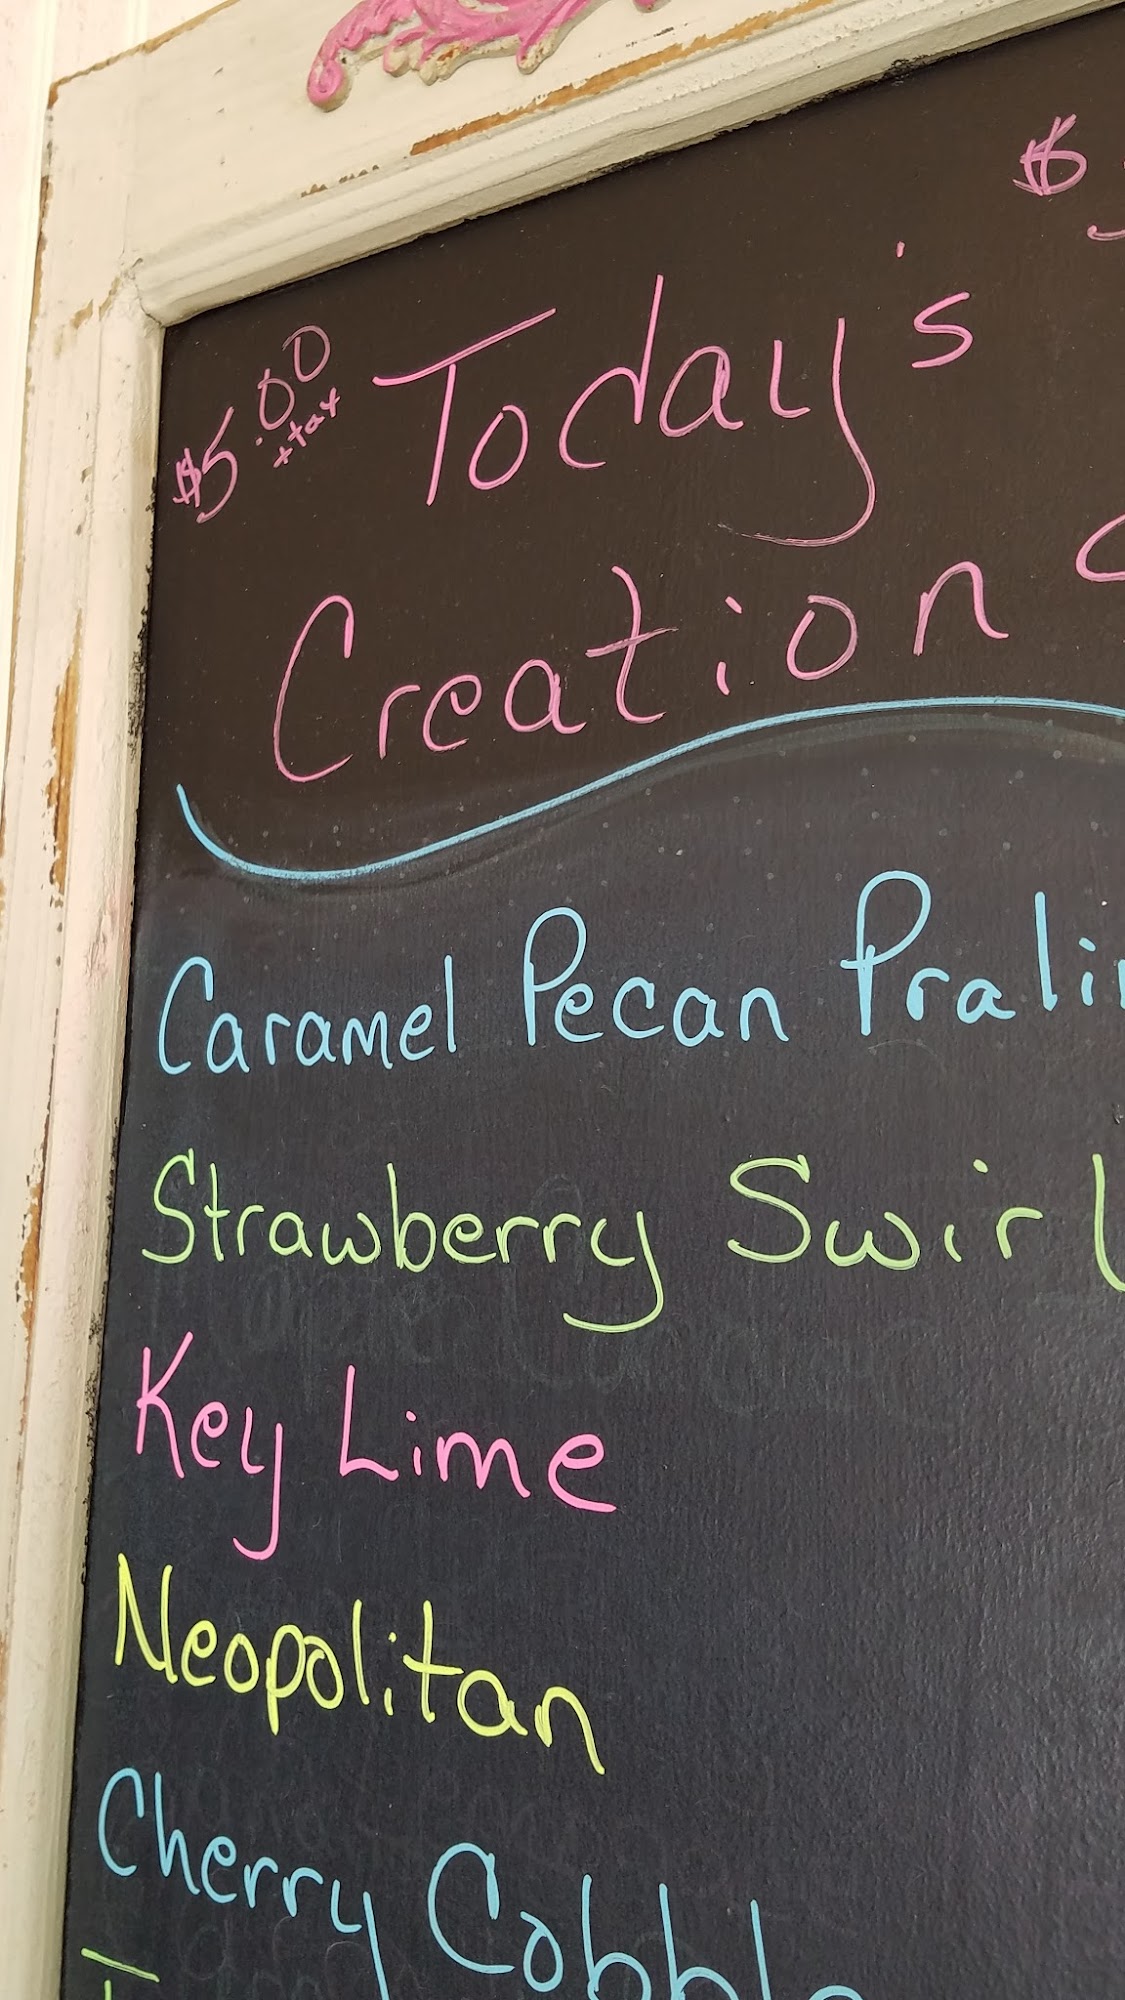 $5.00
+tax
Today's
Creation
Caramel Pecan
Strawberry Swirl
Key Lime
Neopolitan
Cherry